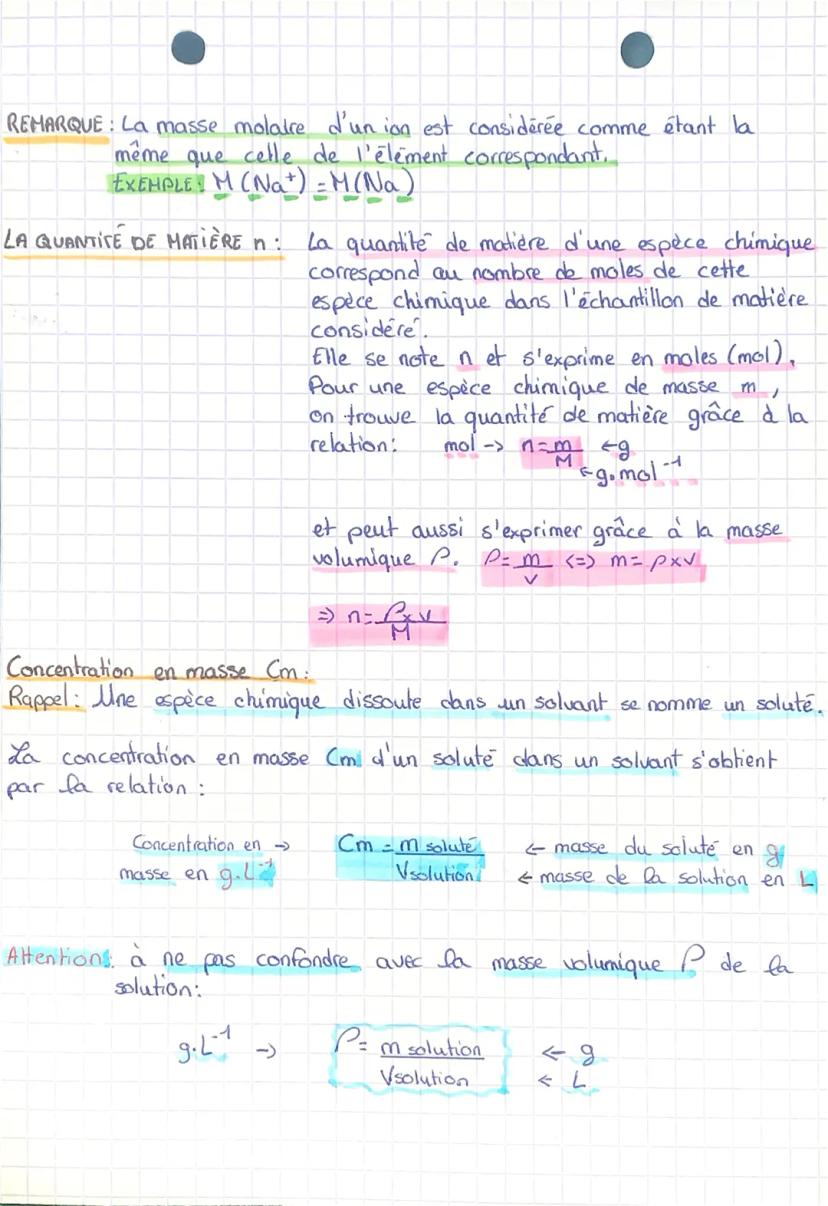 REMARQUE : La masse molaire d'un ion est considérée comme étant la
même que celle de l'élément correspondant.
EXEMPLE : M (Na⁺) = M (Na)
LA QUANTITÉ DE MATIÈRE n : La quantité de matière d'une espèce chimique
correspond au nombre de moles de cette
espèce chimique dans l'échantillon de matière
considéré.
Elle se note n et s'exprime en moles (mol).
Pour une espèce chimique de masse m,
on trouve la quantité de matière grâce à la
relation: mol -> n = m/M <- g
<- g.mol⁻¹
et peut aussi s'exprimer grâce à la masse
volumique ρ. ρ = m/v <=> m = ρ x v
=> n = ρ x v/M
Concentration en masse Cm :
Rappel : Une espèce chimique dissoute dans un solvant se nomme un soluté.
La concentration en masse Cm d'un soluté dans un solvant s'obtient
par la relation :
Concentration en -> Cm = m soluté <- masse du soluté en g
masse en g.L⁻¹ Vsolution <- masse de la solution en L
Attention : à ne pas confondre avec la masse volumique ρ de la
solution :
g.L⁻¹ -> ρ = m solution <- g
Vsolution <- L